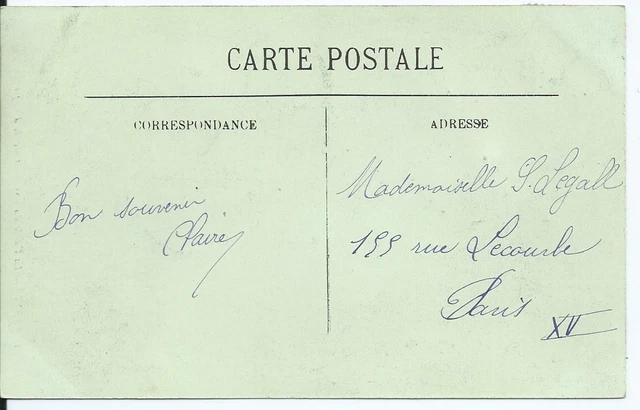 CARTE POSTALE
CORRESPONDANCE
Bon souvenir
Claire
ADRESSE
Mademoiselle S. Legall
155 rue Lecourbe
Paris XV